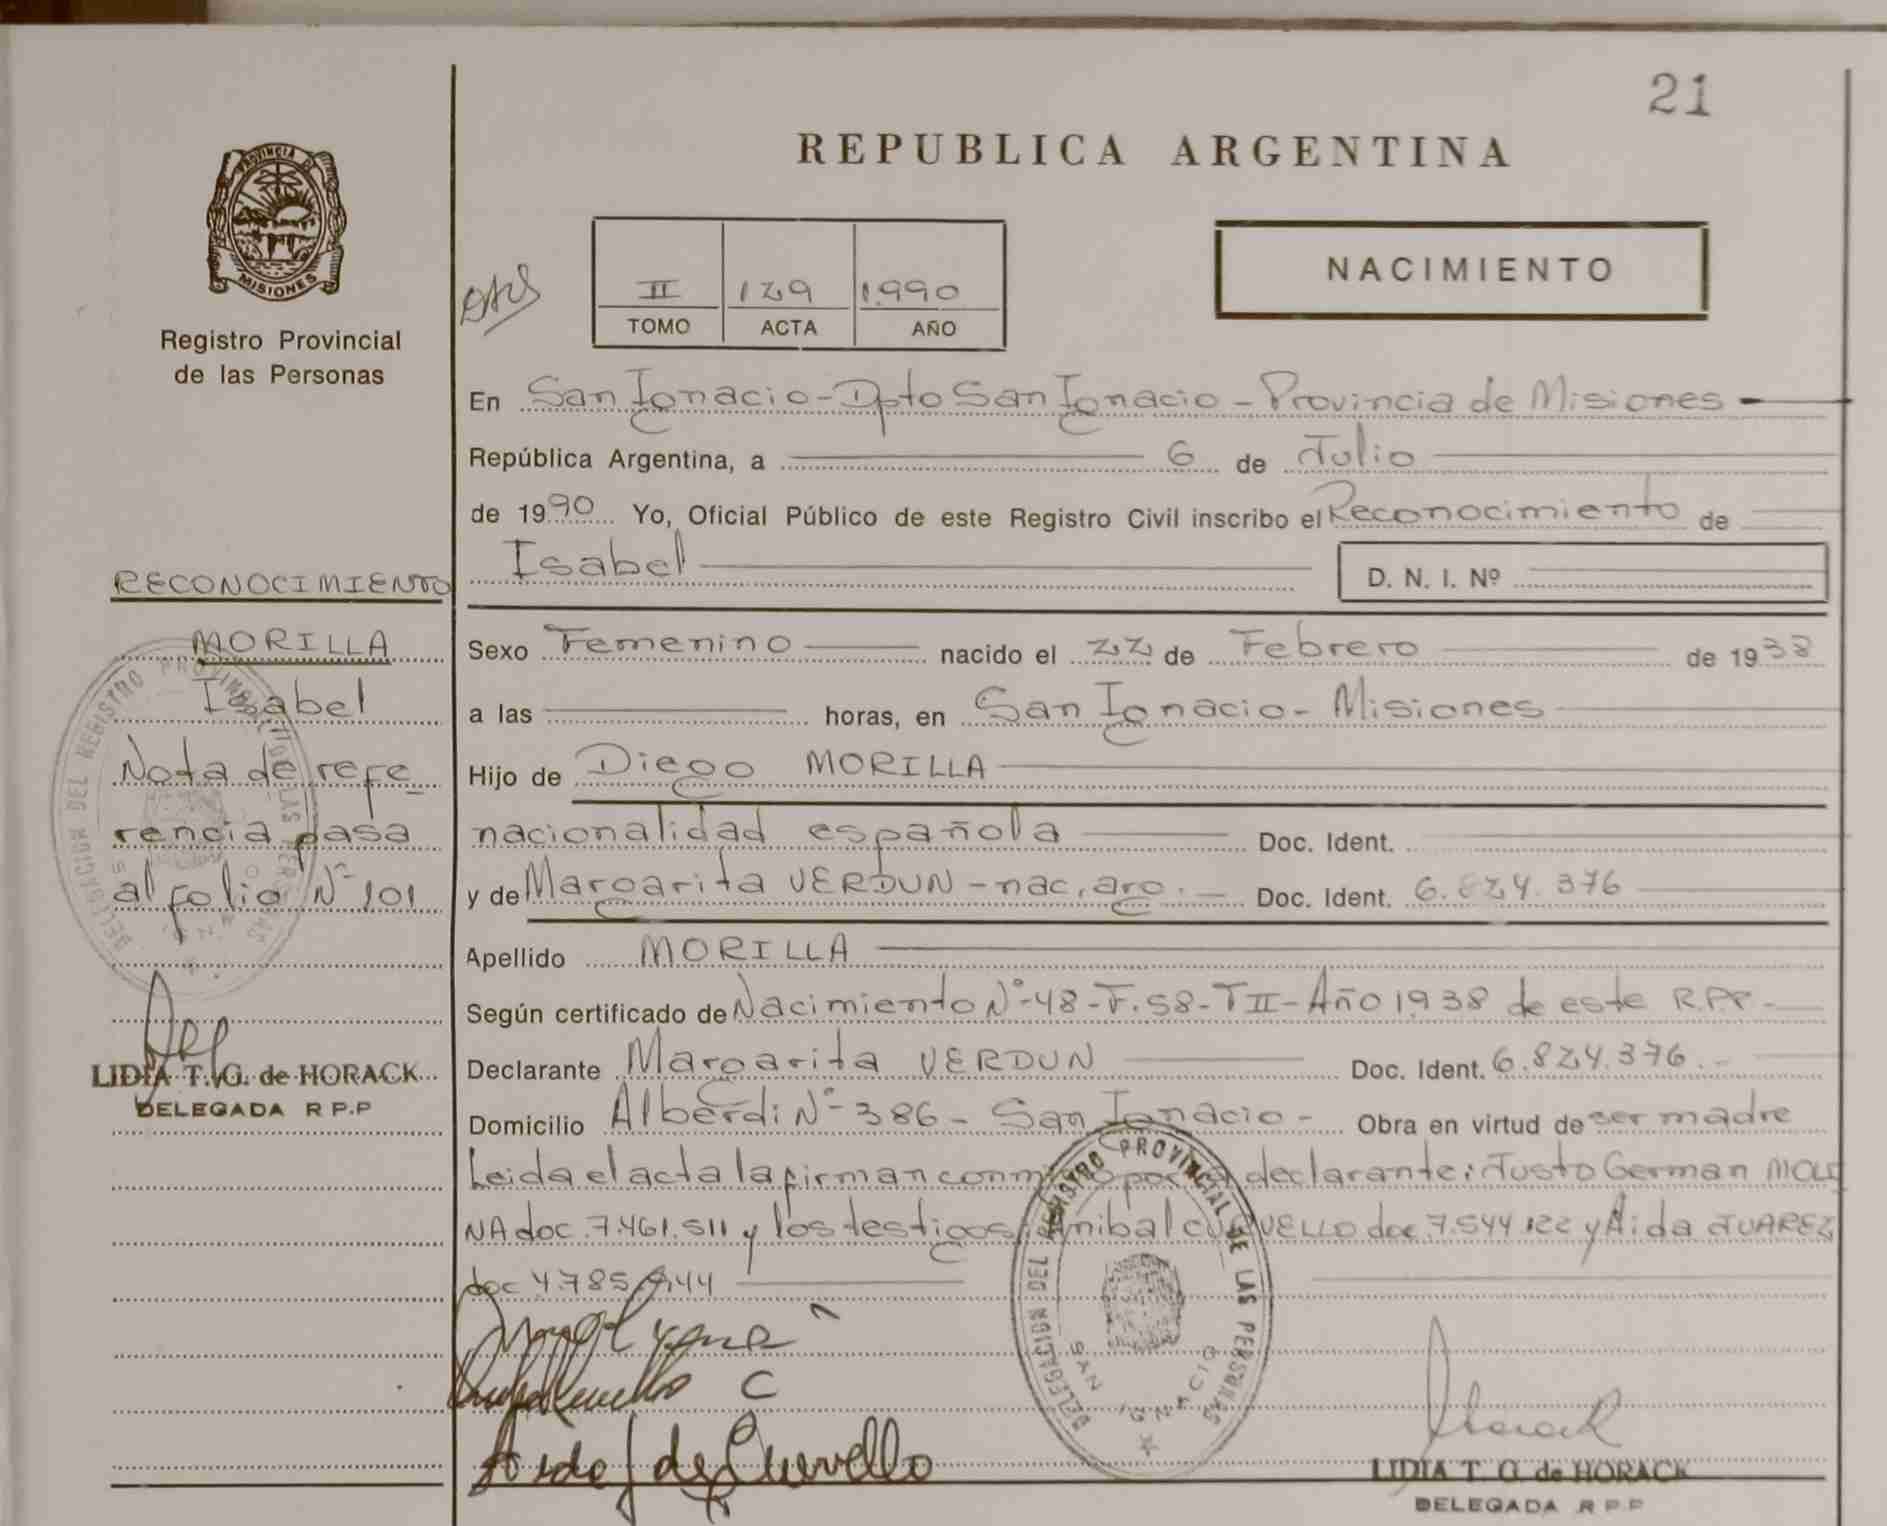 21
REPUBLICA ARGENTINA
PROVINCIA DE
MISIONES
Registro Provincial
de las Personas
II 129 1.990
TOMO ACTA AÑO
NACIMIENTO
En San Ignacio - Dpto San Ignacio - Provincia de Misiones -
República Argentina, a 6 de Julio
de 1990 Yo, Oficial Público de este Registro Civil inscribo el Reconocimiento de
Isabel
D. N. I. Nº
RECONOCIMIENTO
MORILLA
Isabel
Nota de refe
rencia pasa
al folio Nº 101
LIDIA T. G. de HORACK
DELEGADA R P.P
DELEGACION DEL REGISTRO PROVINCIAL DE LAS PERSONAS
SAN IGNACIO
Sexo Femenino nacido el 22 de Febrero de 1938
a las horas, en San Ignacio - Misiones
Hijo de Diego MORILLA
nacionalidad española Doc. Ident.
y de Margarita VERDUN - nac. arg. - Doc. Ident. 6.824.376
Apellido MORILLA
Según certificado de Nacimiento Nº 48 - F. 58 - T II - Año 1938 de este R.P.P -
Declarante Margarita VERDUN Doc. Ident. 6.824.376.-
Domicilio Alberdi Nº 386 - San Ignacio - Obra en virtud de ser madre
Leida el acta la firman conmigo por la declarante: Justo German MOLI
NA doc. 7.461.511 y los testigos: Anibal CUQUELLO doc. 7.544.122 y Aida JUAREZ
doc 4.785.944
Aida J de
DELEGACION DEL REGISTRO PROVINCIAL DE LAS PERSONAS
SAN IGNACIO
Horack
LIDIA T. G. de HORACK
DELEGADA R P P